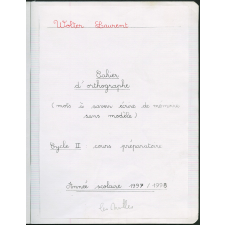 Laurent
Cahier
d'orthographe
(mots à savoir écrire de mémoire
sans modèle)
Cycle II : cours préparatoire
Année scolaire 1997/1998